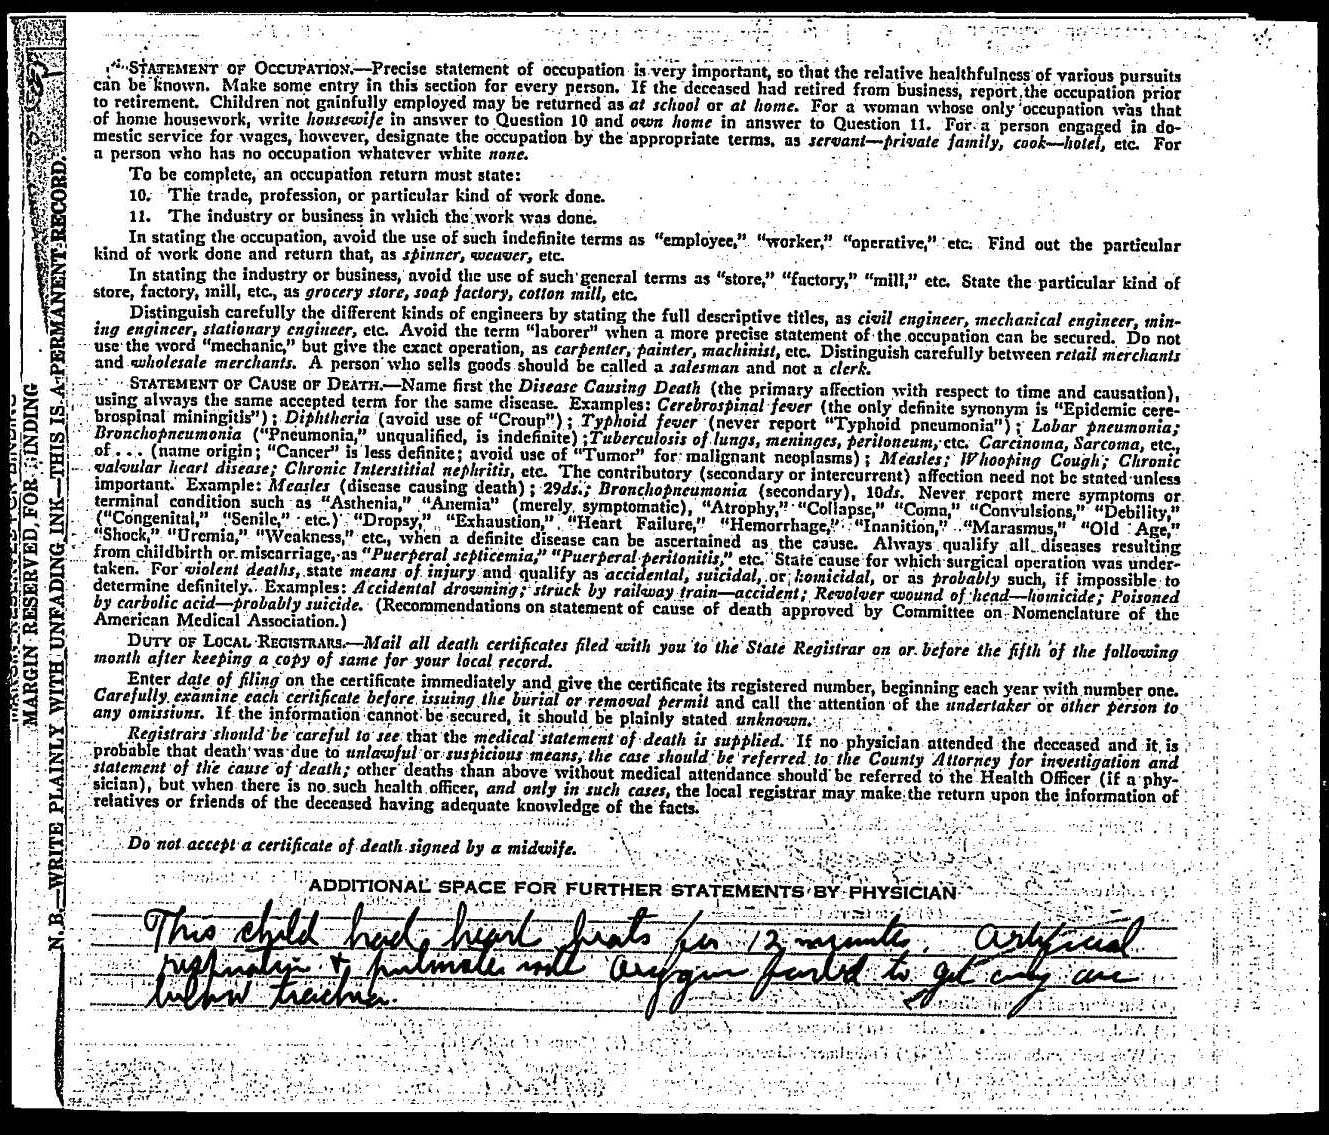 STATEMENT OF OCCUPATION.—Precise statement of occupation is very important, so that the relative healthfulness of various pursuits
can be known. Make some entry in this section for every person. If the deceased had retired from business, report the occupation prior
to retirement. Children not gainfully employed may be returned as at school or at home. For a woman whose only occupation was that
of home housework, write housewife in answer to Question 10 and own home in answer to Question 11. For a person engaged in do-
mestic service for wages, however, designate the occupation by the appropriate terms, as servant—private family, cook—hotel, etc. For
a person who has no occupation whatever white none.
To be complete, an occupation return must state:
10. The trade, profession, or particular kind of work done.
11. The industry or business in which the work was done.
In stating the occupation, avoid the use of such indefinite terms as "employee," "worker," "operative," etc. Find out the particular
kind of work done and return that, as spinner, weaver, etc.
In stating the industry or business, avoid the use of such general terms as "store," "factory," "mill," etc. State the particular kind of
store, factory, mill, etc., as grocery store, soap factory, cotton mill, etc.
Distinguish carefully the different kinds of engineers by stating the full descriptive titles, as civil engineer, mechanical engineer, min-
ing engineer, stationary engineer, etc. Avoid the term "laborer" when a more precise statement of the occupation can be secured. Do not
use the word "mechanic," but give the exact operation, as carpenter, painter, machinist, etc. Distinguish carefully between retail merchants
and wholesale merchants. A person who sells goods should be called a salesman and not a clerk.
STATEMENT OF CAUSE OF DEATH.—Name first the Disease Causing Death (the primary affection with respect to time and causation),
using always the same accepted term for the same disease. Examples: Cerebrospinal fever (the only definite synonym is "Epidemic cere-
brospinal miningitis"); Diphtheria (avoid use of "Croup"); Typhoid fever (never report "Typhoid pneumonia"); Lobar pneumonia;
Bronchopneumonia ("Pneumonia," unqualified, is indefinite); Tuberculosis of lungs, meninges, peritoneum, etc. Carcinoma, Sarcoma, etc.,
of . . . (name origin; "Cancer" is less definite; avoid use of "Tumor" for malignant neoplasms); Measles; Whooping Cough; Chronic
valvular heart disease; Chronic Interstitial nephritis, etc. The contributory (secondary or intercurrent) affection need not be stated unless
important. Example: Measles (disease causing death); 29ds.; Bronchopneumonia (secondary), 10ds. Never report mere symptoms or
terminal condition such as "Asthenia," "Anemia" (merely symptomatic), "Atrophy," "Collapse," "Coma," "Convulsions," "Debility,"
("Congenital," "Senile," etc.) "Dropsy," "Exhaustion," "Heart Failure," "Hemorrhage," "Inanition," "Marasmus," "Old Age,"
"Shock," "Uremia," "Weakness," etc., when a definite disease can be ascertained as the cause. Always qualify all diseases resulting
from childbirth or miscarriage, as "Puerperal septicemia," "Puerperal peritonitis," etc. State cause for which surgical operation was under-
taken. For violent deaths, state means of injury and qualify as accidental, suicidal, or homicidal, or as probably such, if impossible to
determine definitely. Examples: Accidental drowning; struck by railway train—accident; Revolver wound of head—homicide; Poisoned
by carbolic acid—probably suicide. (Recommendations on statement of cause of death approved by Committee on Nomenclature of the
American Medical Association.)
DUTY OF LOCAL REGISTRARS.—Mail all death certificates filed with you to the State Registrar on or before the fifth of the following
month after keeping a copy of same for your local record.
Enter date of filing on the certificate immediately and give the certificate its registered number, beginning each year with number one.
Carefully examine each certificate before issuing the burial or removal permit and call the attention of the undertaker or other person to
any omissions. If the information cannot be secured, it should be plainly stated unknown.
Registrars should be careful to see that the medical statement of death is supplied. If no physician attended the deceased and it is
probable that death was due to unlawful or suspicious means, the case should be referred to the County Attorney for investigation and
statement of the cause of death; other deaths than above without medical attendance should be referred to the Health Officer (if a phy-
sician), but when there is no such health officer, and only in such cases, the local registrar may make the return upon the information of
relatives or friends of the deceased having adequate knowledge of the facts.
Do not accept a certificate of death signed by a midwife.
ADDITIONAL SPACE FOR FURTHER STATEMENTS BY PHYSICIAN
This child had heart beats for 12 minutes. Artificial
respiration & pulmotor with oxygen failed to get any air
below trachea.
MARGIN RESERVED FOR BINDING
N. B.—WRITE PLAINLY WITH UNFADING INK—THIS IS A PERMANENT RECORD.